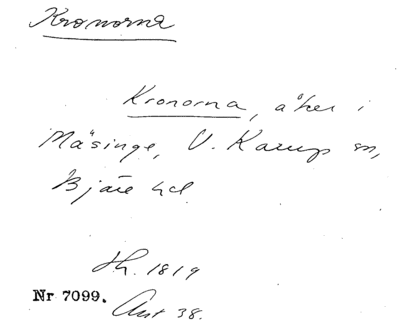 Kronorna
Kronorna, åker i
Mäsinge, V. Karup sn,
Bjäre hd.
Sk. 1819
Nr 7099.
Ant 38.